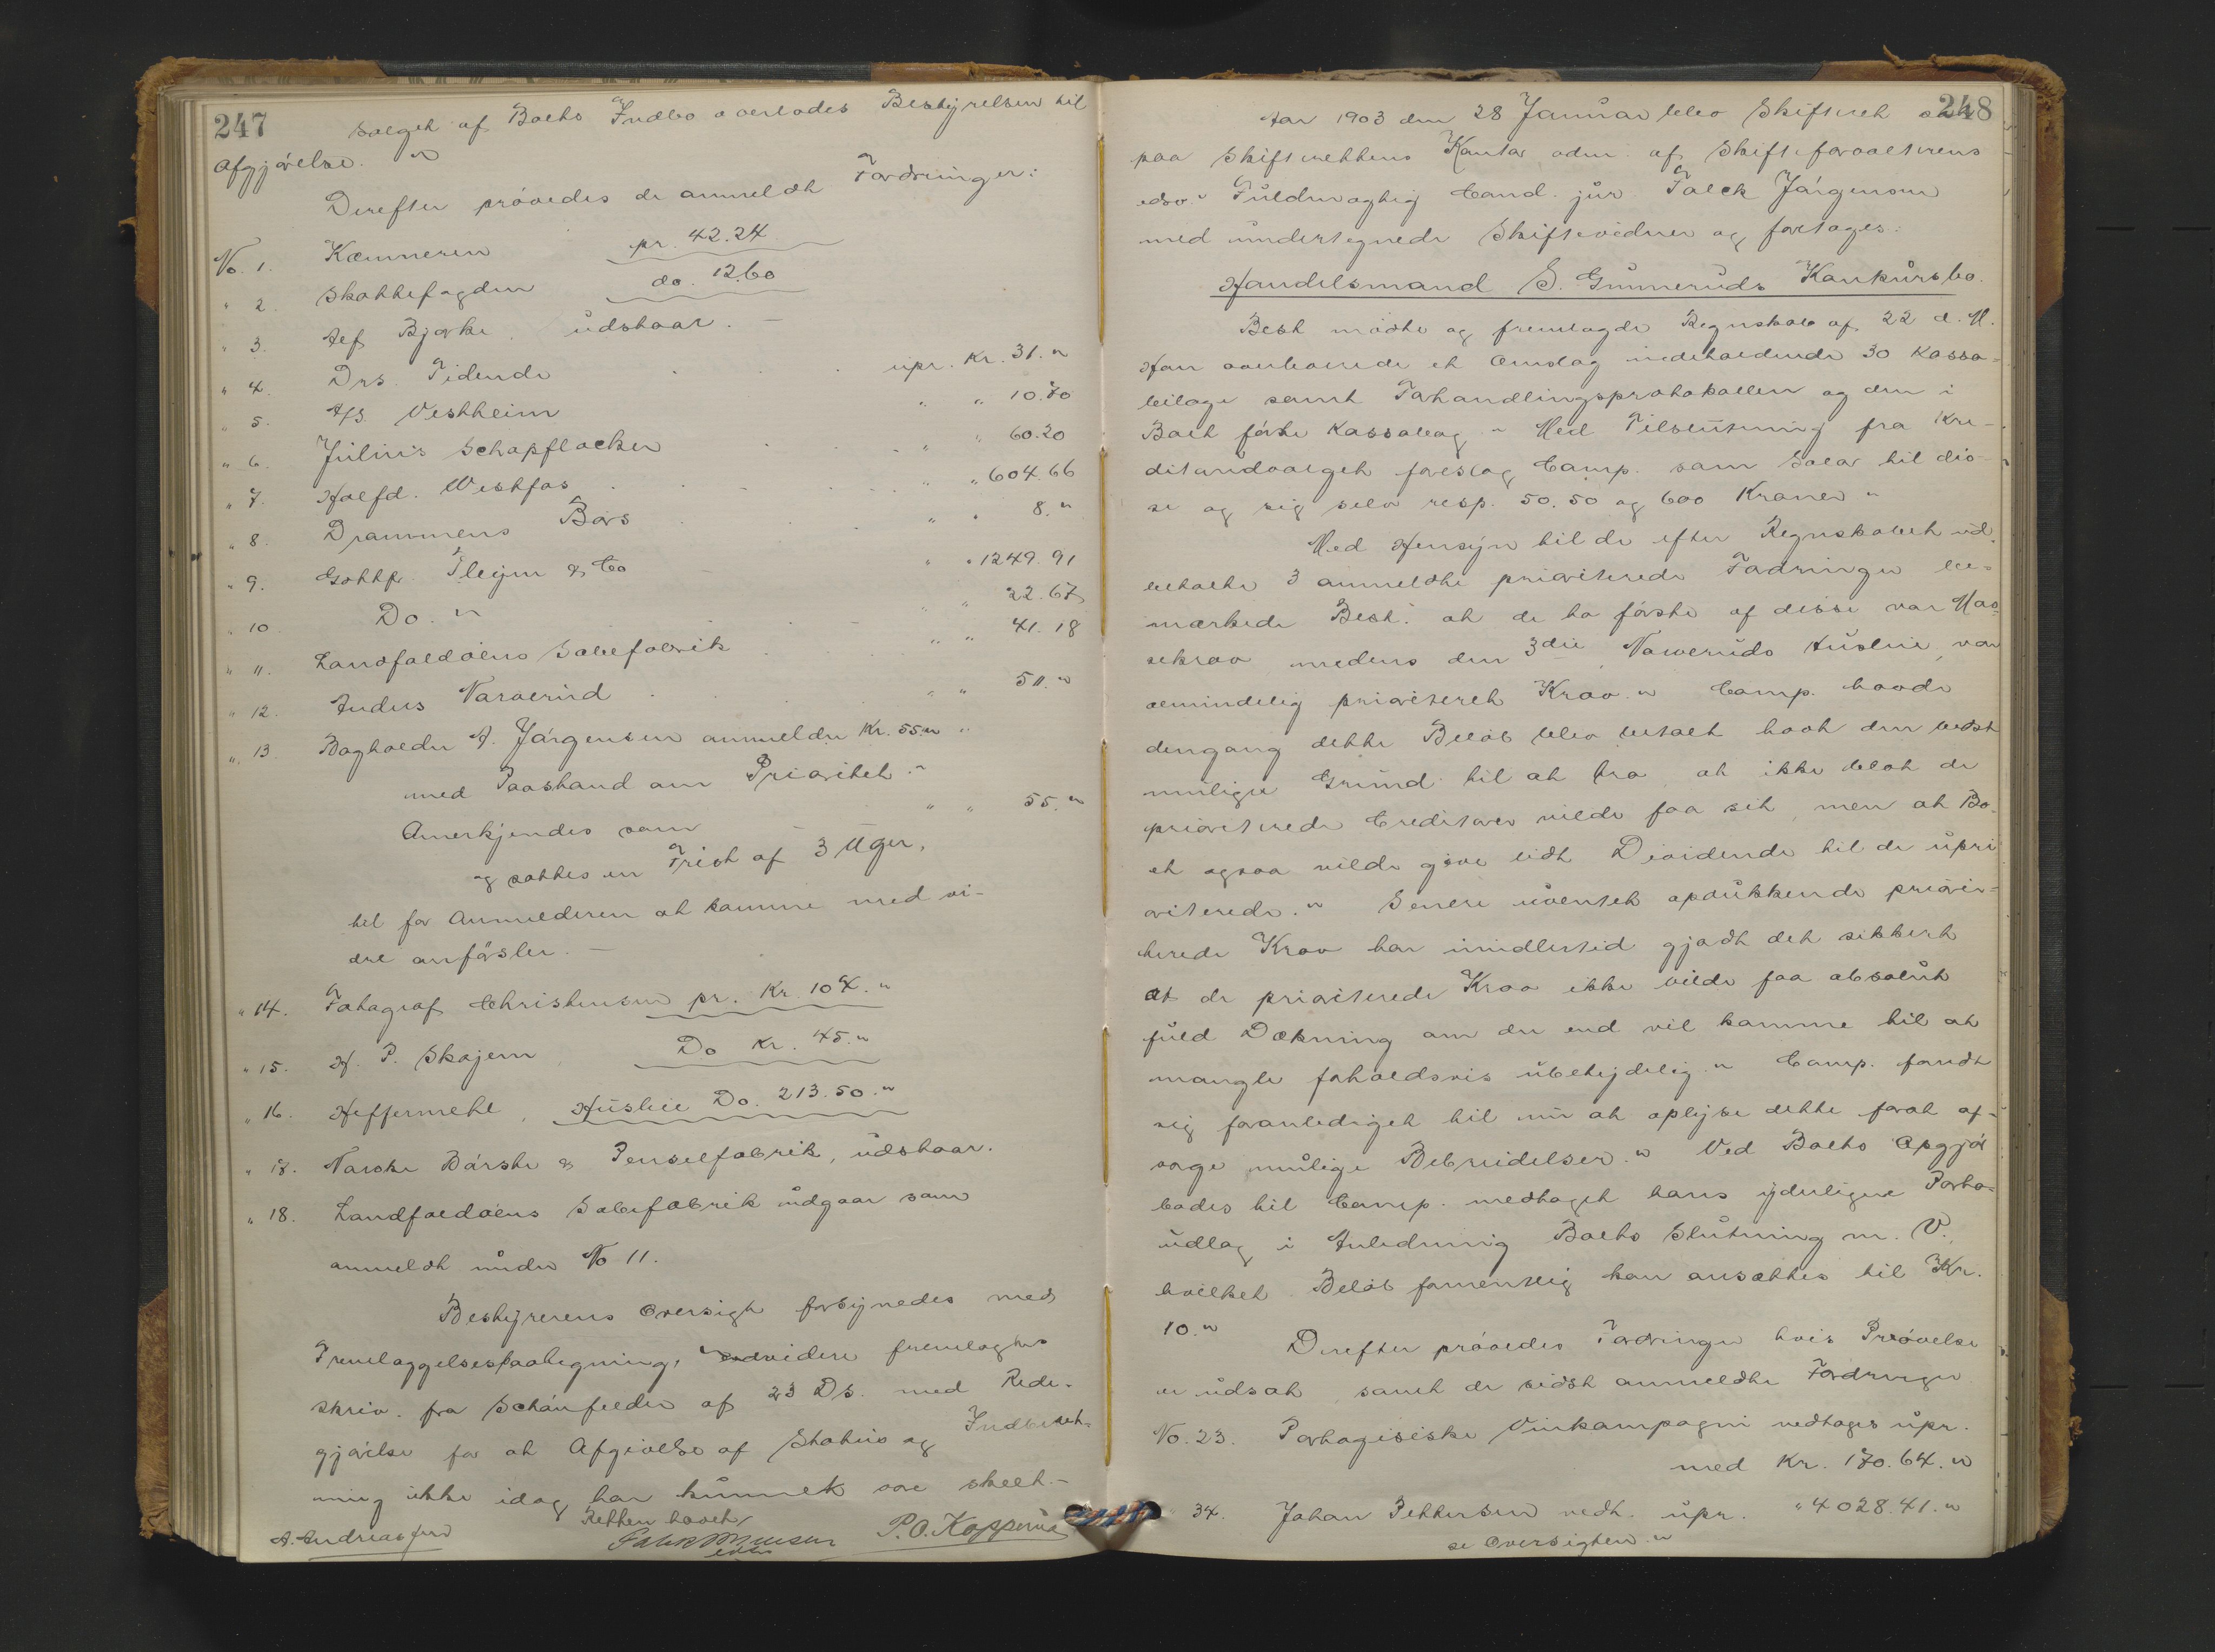 247
Salget af Boets Indbo overlodes Bestyrelsen til
Afgjørelse. "
Derefter prøvedes de anmeldte Fordringer:
No. 1. Kæmneren pr. 42.24
" 2. Skattefogden do. 12.60
" 3. Alf Bjerke, udstaar. —
" 4. Drs. Tidende upr. Kr. 31. "
" 5. A/S. Vestheim " " 10.70
" 6. Julius Schapflocher " " 60.20
" 7. Halfd. Westfos " " 604.66
" 8. Drammens Børs " " 8. "
" 9. Gottfr. Plejm & Co " " 1249.91
" 10 Do. " " " 22.67
" 11. Landfaldøens Sæbefabrik " " 41.18
" 12. Anders Narverud " " 50. "
" 13 Bogholder A. Jørgensen anmelder Kr. 55. "
med Paastand om Prioritet. "
Anerkjendes som " " 55. "
og sattes en Frist af 3 Uger,
til for Anmelderen at komme med vi-
dre anførsler. —
" 14. Fotograf Christensen pr. Kr. 104. "
" 15. H. P. Skojem Do Kr. 45. "
" 16. Heffermehl, Husleie Do. 213.50. "
" 17. Norske Børste & Penselfabrik, udstaar.
" 18. Landfaldøens Sæbefabrik udgaar som
anmeldt under No 11.
Bestyrerens Oversigt forsynedes med
Fremlæggelsespaategning, videre fremlagtes
Skriv. fra Schønfelder af 23 Ds. med Rede-
gjørelse for at Afgivelse af Status og Indberet-
ning ikke idag har kunnet ske skeet. —
Retten hævet
A. Andreassen P. O. Kopperud
248
Aar 1903 den 28 Januar blev Skifteret sat
paa Skifterettens Kontor adm. af Skifteforvalterens
edsv. Fuldmægtig Cand. jur. Falck Jørgensen
med undertegnede Skiftevidner og foretages:
Handelsmand S. Gunneruds Konkursbo.
Best. mødte og fremlagde Regnskab af 22 d. M.
Han overleverede et Omslag indeholdende 30 Kassa-
bilage samt Forhandlingsprotokollen og den i
Boet førte Kassabog " Med Tilslutning fra Kre-
ditorudvalget foreslog Comp. som Salær til dis-
se og sig selv resp. 50. 50 og 600 Kroner "
Med Hensyn til de efter Regnskabet ud-
betalte 3 anmeldte prioriterede Fordringer be-
mærkede Best. at de to første af disse var Mas-
sekrav medens den 3die, Narveruds Husleie, var
almindelig prioriteret Krav. " Comp. havde
dengang dette Beløb blev betalt havt den bedst
mulige Grund til at tro at ikke blot de
prioriterede Creditorer vilde faa sit, men at Bo-
et ogsaa vilde give lidt Dividende til de upri
oriterede. " Senere uventet opdukkende priori-
terede Krav har imidlertid gjort det sikkert
at de prioriterede Krav ikke vilde faa absolut
fuld Dækning om der end vil komme til at
mangle forholdsvis ubetydelig " Comp. fandt
sig foranlediget til nu at oplyse dette forat af-
værge mulige Bebreidelser. " Ved Boets Opgjør
bødes til Comp. medtaget hans yderligere Porto-
udlæg i Anledning Boets Slutning m. V.,
hvilket Beløb formentlig kan ansættes til Kr.
10. "
Derefter prøvedes Fordringer hvis Prøvelse
er udsat samt de sidst anmeldte Fordringer
No. 23. Portugisiske Vinkompagni vedtages upr.
med Kr. 170.64. "
" 34. Johan Pettersen vedt. upr. " 4028.41. "
se Oversigten. "